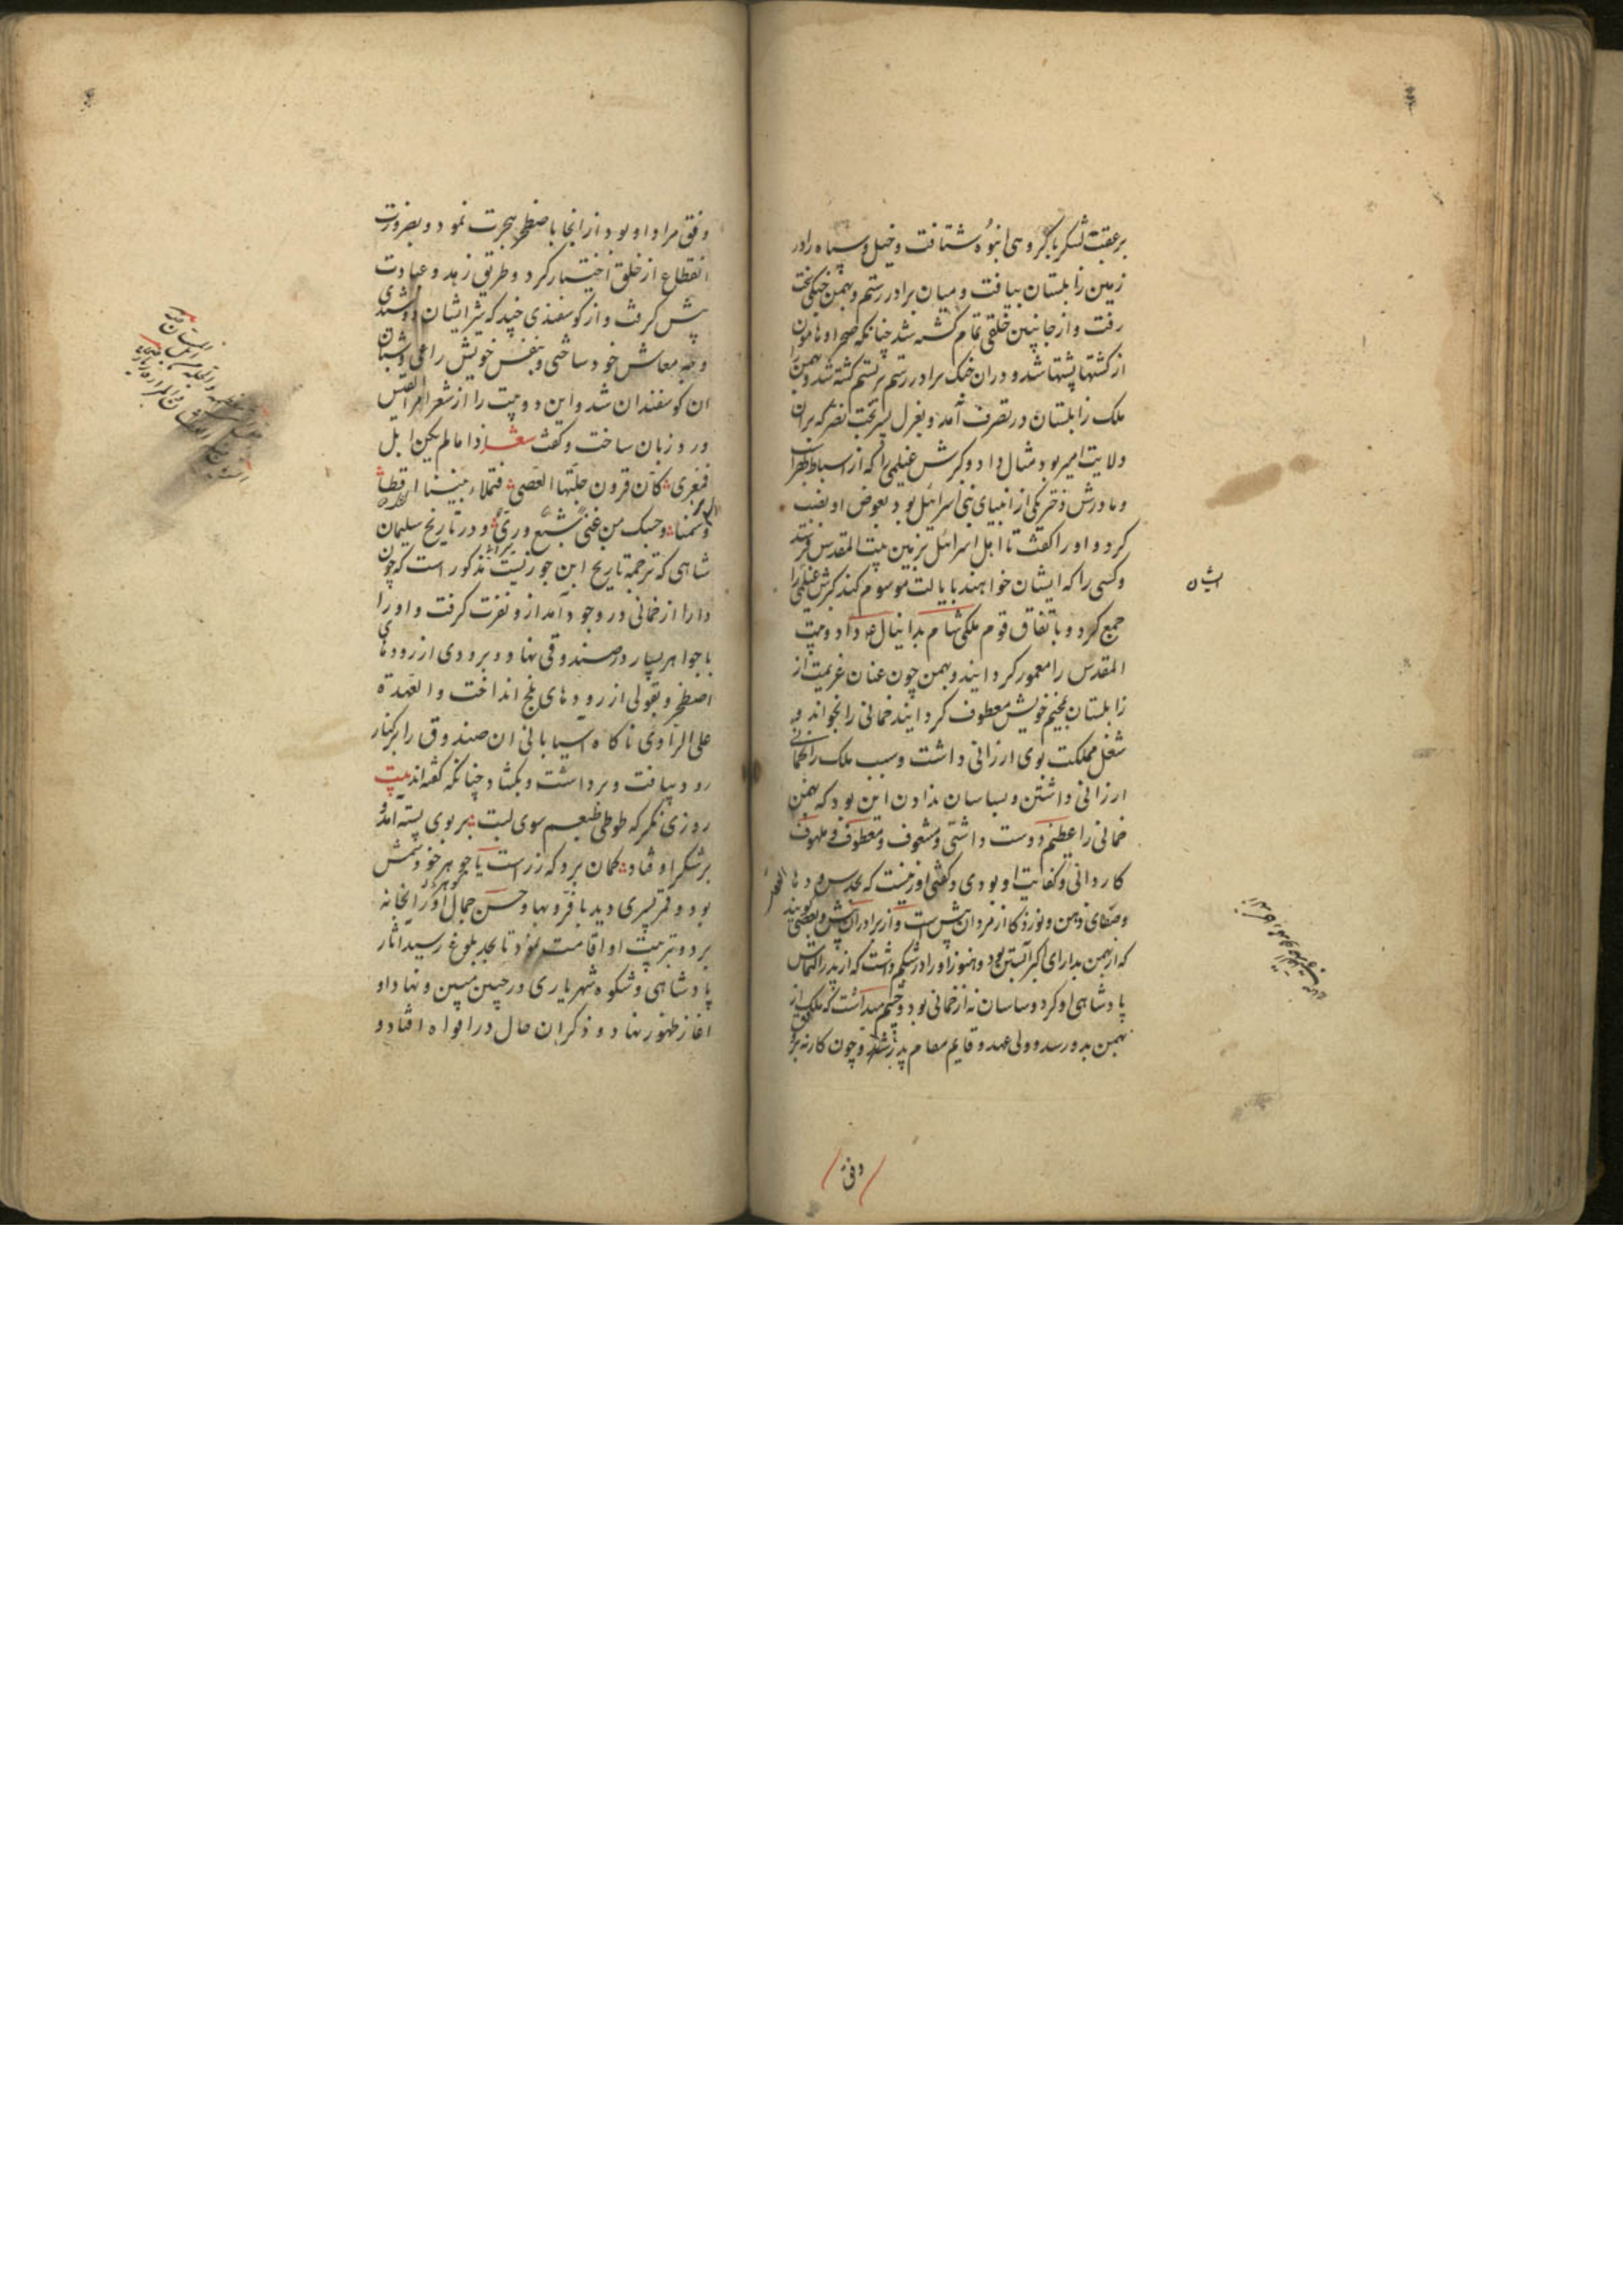 بر عقب لشکر با کروهی انبوه شتافت و خیل و سپاه را در
زمین زابلستان بیافت و میان برادر رستم و بهمن جنکی سخت
رفت و از جانبین خلقی تمام کشته شد چنانکه صحرا و هامون
از کشتها پشتها شد و دران جنک برادر رستم کشته شد و بهمن را
ملک زابلستان در تصرف آمد و بعزل پسر بخت نصر که بران
ولایت امیر بود مثال داد و کیرش غیلمی را که از اسباط
و مادرش دختر یکی از انبیای بنی اسرائیل بود بعوض او نصب
کرد و او را کفت تا اهل اسرائیل بزمین بیت المقدس فرستد
و کسی را که ایشان خواهند بایالت موسوم کند کیرش غیلمی
ایشان
جمع کرد و باتفاق قوم ملکی شام بدانیال ع داد و بیت
المقدس را معمور کردانید و بهمن چون عنان عزیمت از
زابلستان بمخیم خویش معطوف کردانید خمانی را بخواند و
شغل مملکت بوی ارزانی داشت و سبب ملک را بخمانی
ارزانی داشتن و بساسان ندادن این بود که بهمن
خمانی را عظیم دوست داشتی و مشعوف و معطوف و ملهوف
کاردانی و کفایت او بودی و کفتی اورنیست که بحدس و دها
و صفای ذهن و نور ذکا از مردان پیش است و از برادران بیش و بعضی کویند
که از بهمن بدارای اکبر آبستن بود و هنوز او را در شکم داشت که از پدر التماس
پادشاهی او کرد و ساسان نه از خمانی بود و چشم میداشت که ملک از
بهمن بدو رسد و ولی عهد و قایم مقام پدر شد و چون کار نه بر
وفق
وفق مراد او بود از انجا باصطخر هجرت نمود و بضرورت
انقطاع از خلق اختیار کرد و طریق زهد و عبادت
پیش کرفت و از کوسفندی چند که شیر ایشان دوشیدی
وجه معاش خود ساختی و بنفس خویش راعی و شبان
آن کوسفندان شد و این دو بیت را از شعر امرا القیس
ورد زبان ساخت و کفت شعر اذا مالم یکن ابل
فمعزی کان قرون جلتها العصی فتملاء بیتنا اقطا
و سمنا و حسبک من غنی شبع وری و در تاریخ سلیمان
شاهی که ترجمه تاریخ ابن جوزیست مذکور است که چون
دارا از خمانی در وجود آمد ازو نفرت کرفت و او را
با جواهر بسیار در صندوقی نهاد و برودی از رودهای
اصطخر و بقولی از رودهای بلخ انداخت و العهدة
علی الراوی ناکاه آسیابانی ان صندوق را بر کنار
رود بیافت و برداشت و بکشاد چنانکه کفته اند بیت
روزی نکر که طوطی طبعم سوی لبت بر بوی پسته آمد و
بر شکر اوفتاد کمان برد که زر است یا جوهر خود شمس
بود و قمر پسری دید با فر و بها و حسن جمال او را بخانه
برد و تربیت او اقامت نمود تا بحد بلوغ رسید آثار
پادشاهی و شکوه شهریاری در جبین مبین و نهاد او
اغاز ظهور نهاد و ذکر ان حال در افواه افتاد و